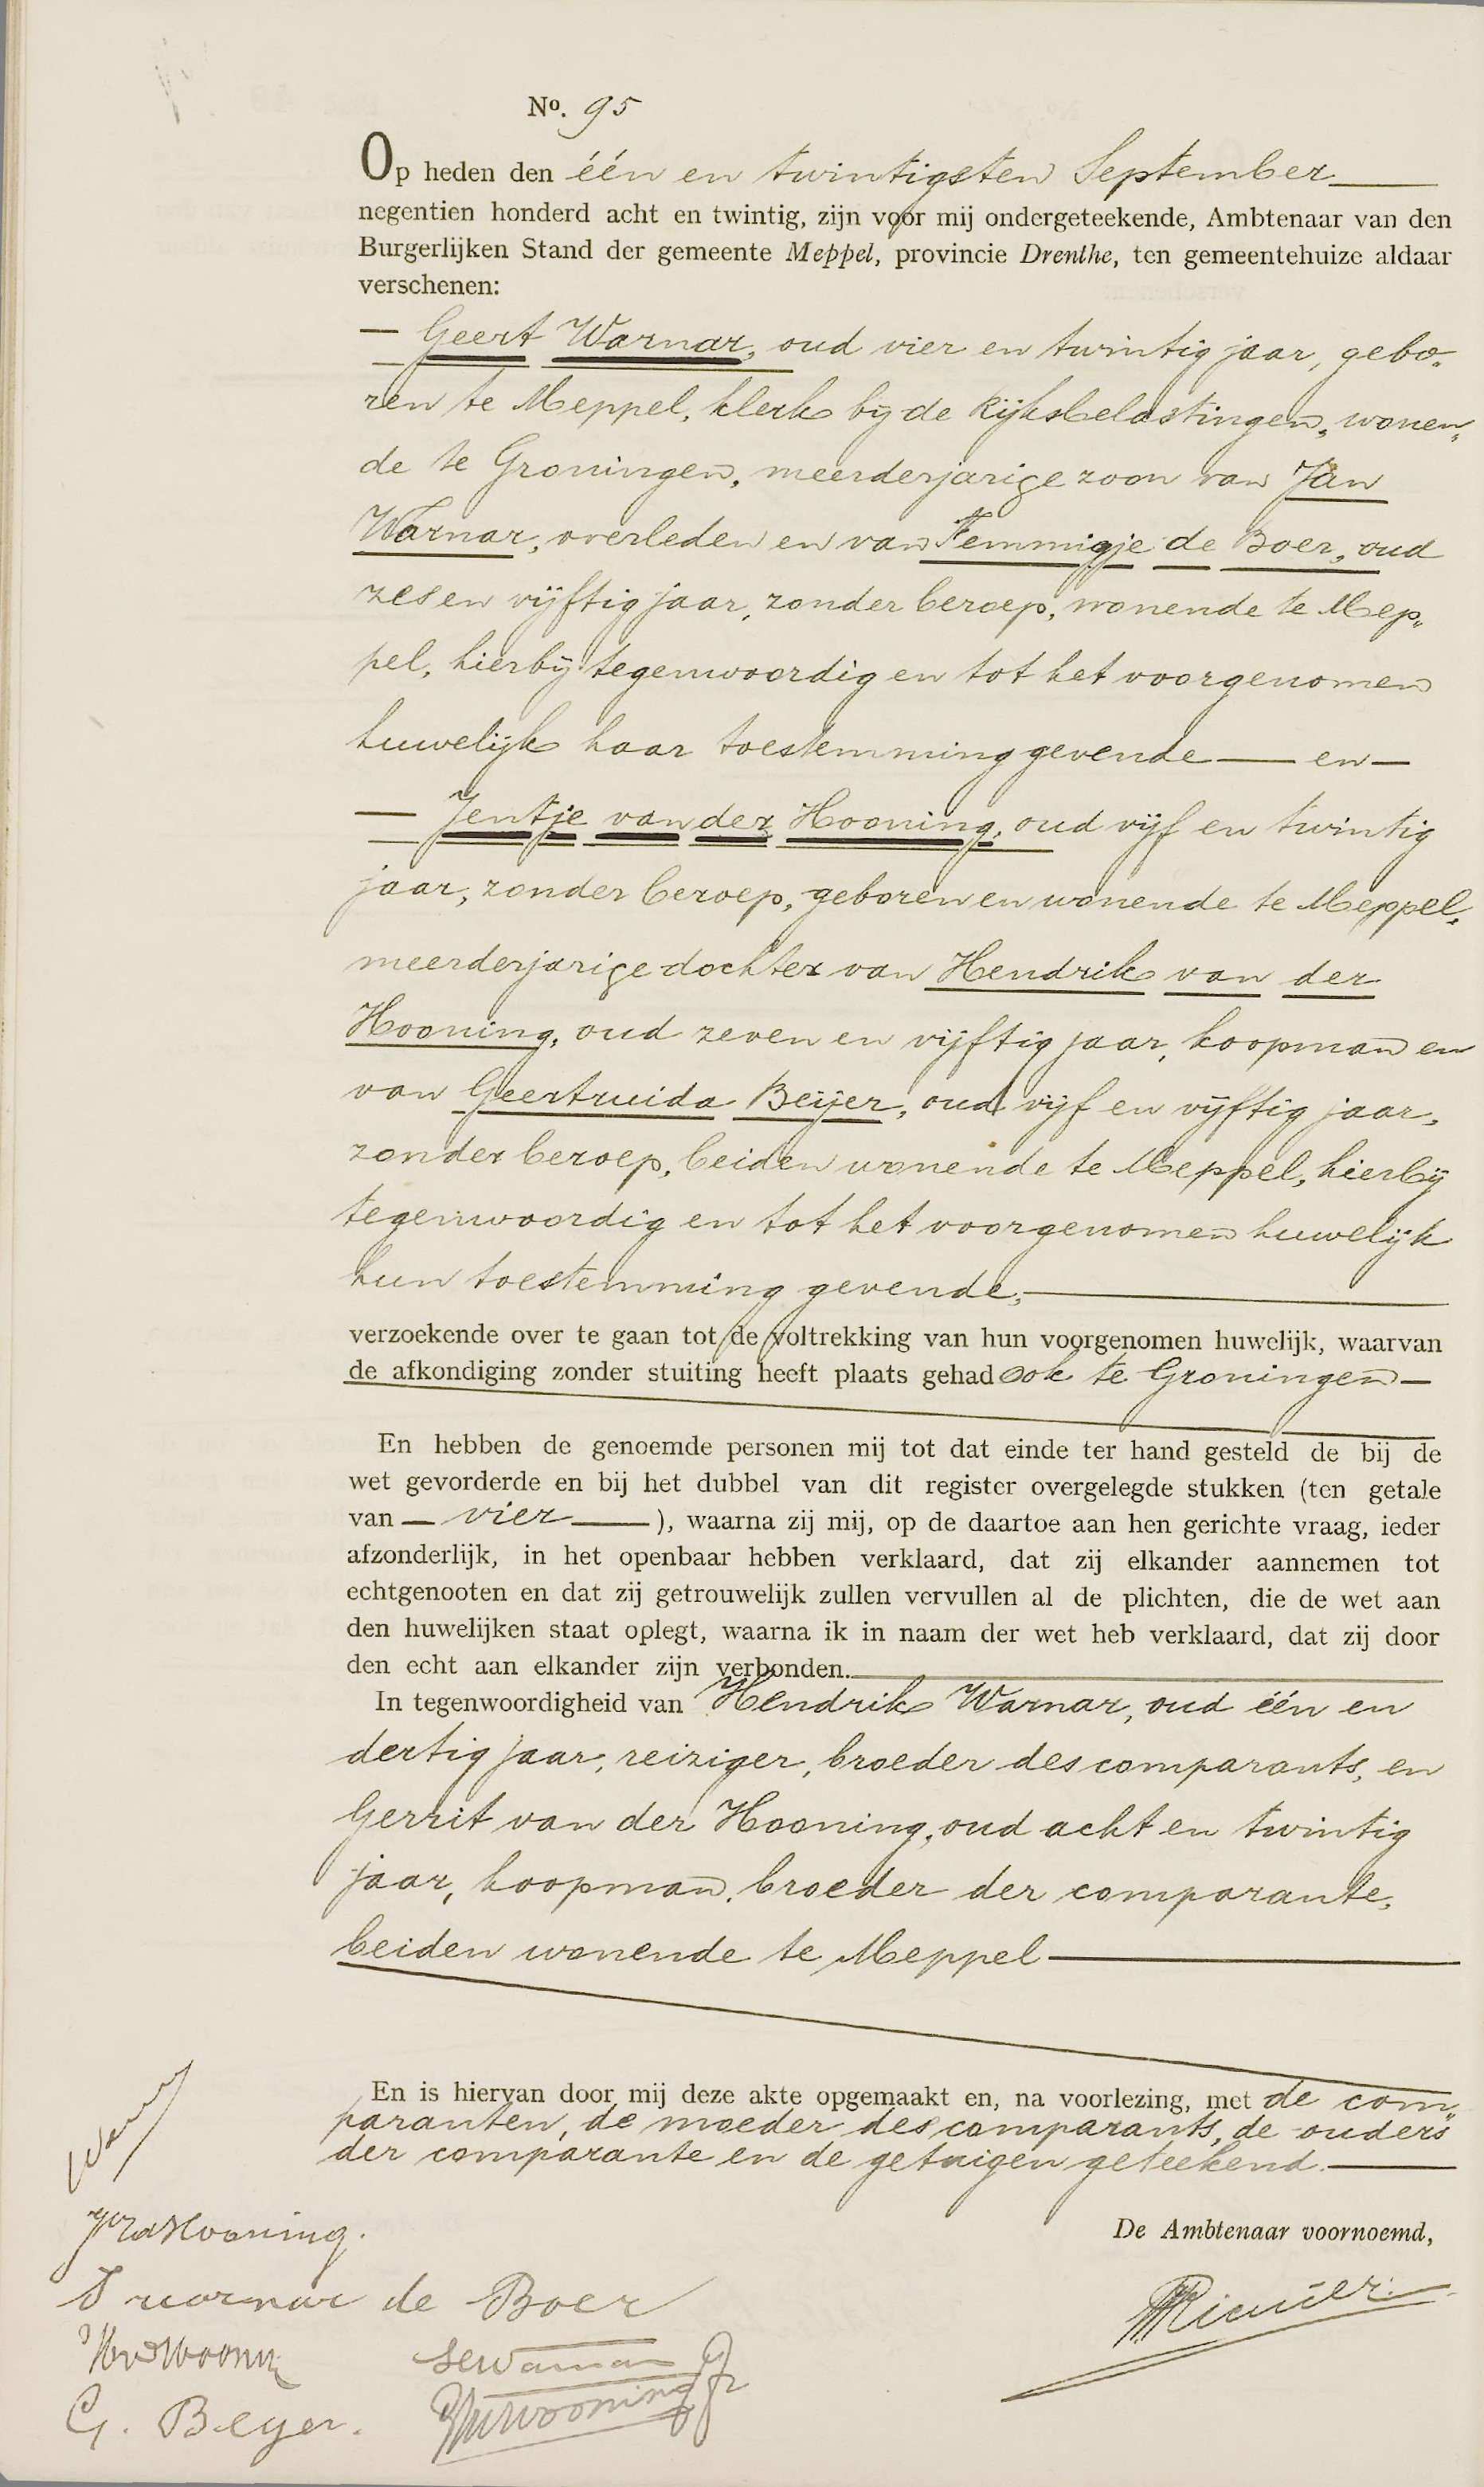 No. 95
Op heden den één en twintigsten September
negentien honderd acht en twintig, zijn voor mij ondergeteekende, Ambtenaar van den
Burgerlijken Stand der gemeente Meppel, provincie Drenthe, ten gemeentehuize aldaar
verschenen:
— Geert Warnar, oud vier en twintig jaar, gebo„
ren te Meppel, klerk bij de Rijksbelastingen, wonen„
de te Groningen, meerderjarige zoon van Jan
Warnar, overleden en van Femmigje de Boer, oud
zes en vijftig jaar, zonder beroep, wonende te Mep„
pel, hierbij tegenwoordig en tot het voorgenomen
huwelijk haar toestemming gevende — en —
— Jentje van der Hooning, oud vijf en twintig
jaar, zonder beroep, geboren en wonende te Meppel,
meerderjarige dochter van Hendrik van der
Hooning, oud zeven en vijftig jaar, koopman en
van Geertruida Beijer, oud vijf en vijftig jaar,
zonder beroep, beiden wonende te Meppel, hierbij
tegenwoordig en tot het voorgenomen huwelijk
hun toestemming gevende,
verzoekende over te gaan tot de voltrekking van hun voorgenomen huwelijk, waarvan
de afkondiging zonder stuiting heeft plaats gehad ook te Groningen —
En hebben de genoemde personen mij tot dat einde ter hand gesteld de bij de
wet gevorderde en bij het dubbel van dit register overgelegde stukken (ten getale
van — vier — ), waarna zij mij, op de daartoe aan hen gerichte vraag, ieder
afzonderlijk, in het openbaar hebben verklaard, dat zij elkander aannemen tot
echtgenooten en dat zij getrouwelijk zullen vervullen al de plichten, die de wet aan
den huwelijken staat oplegt, waarna ik in naam der wet heb verklaard, dat zij door
den echt aan elkander zijn verbonden.
In tegenwoordigheid van Hendrik Warnar, oud één en
dertig jaar, reiziger, broeder des comparants, en
Gerrit van der Hooning, oud acht en twintig
jaar, koopman, broeder der comparante,
beiden wonende te Meppel
En is hiervan door mij deze akte opgemaakt en, na voorlezing, met de com„
paranten, de moeder des comparants, de ouders
der comparante en de getuigen geteekend.
De Ambtenaar voornoemd,
de Boer
G. Beyer.